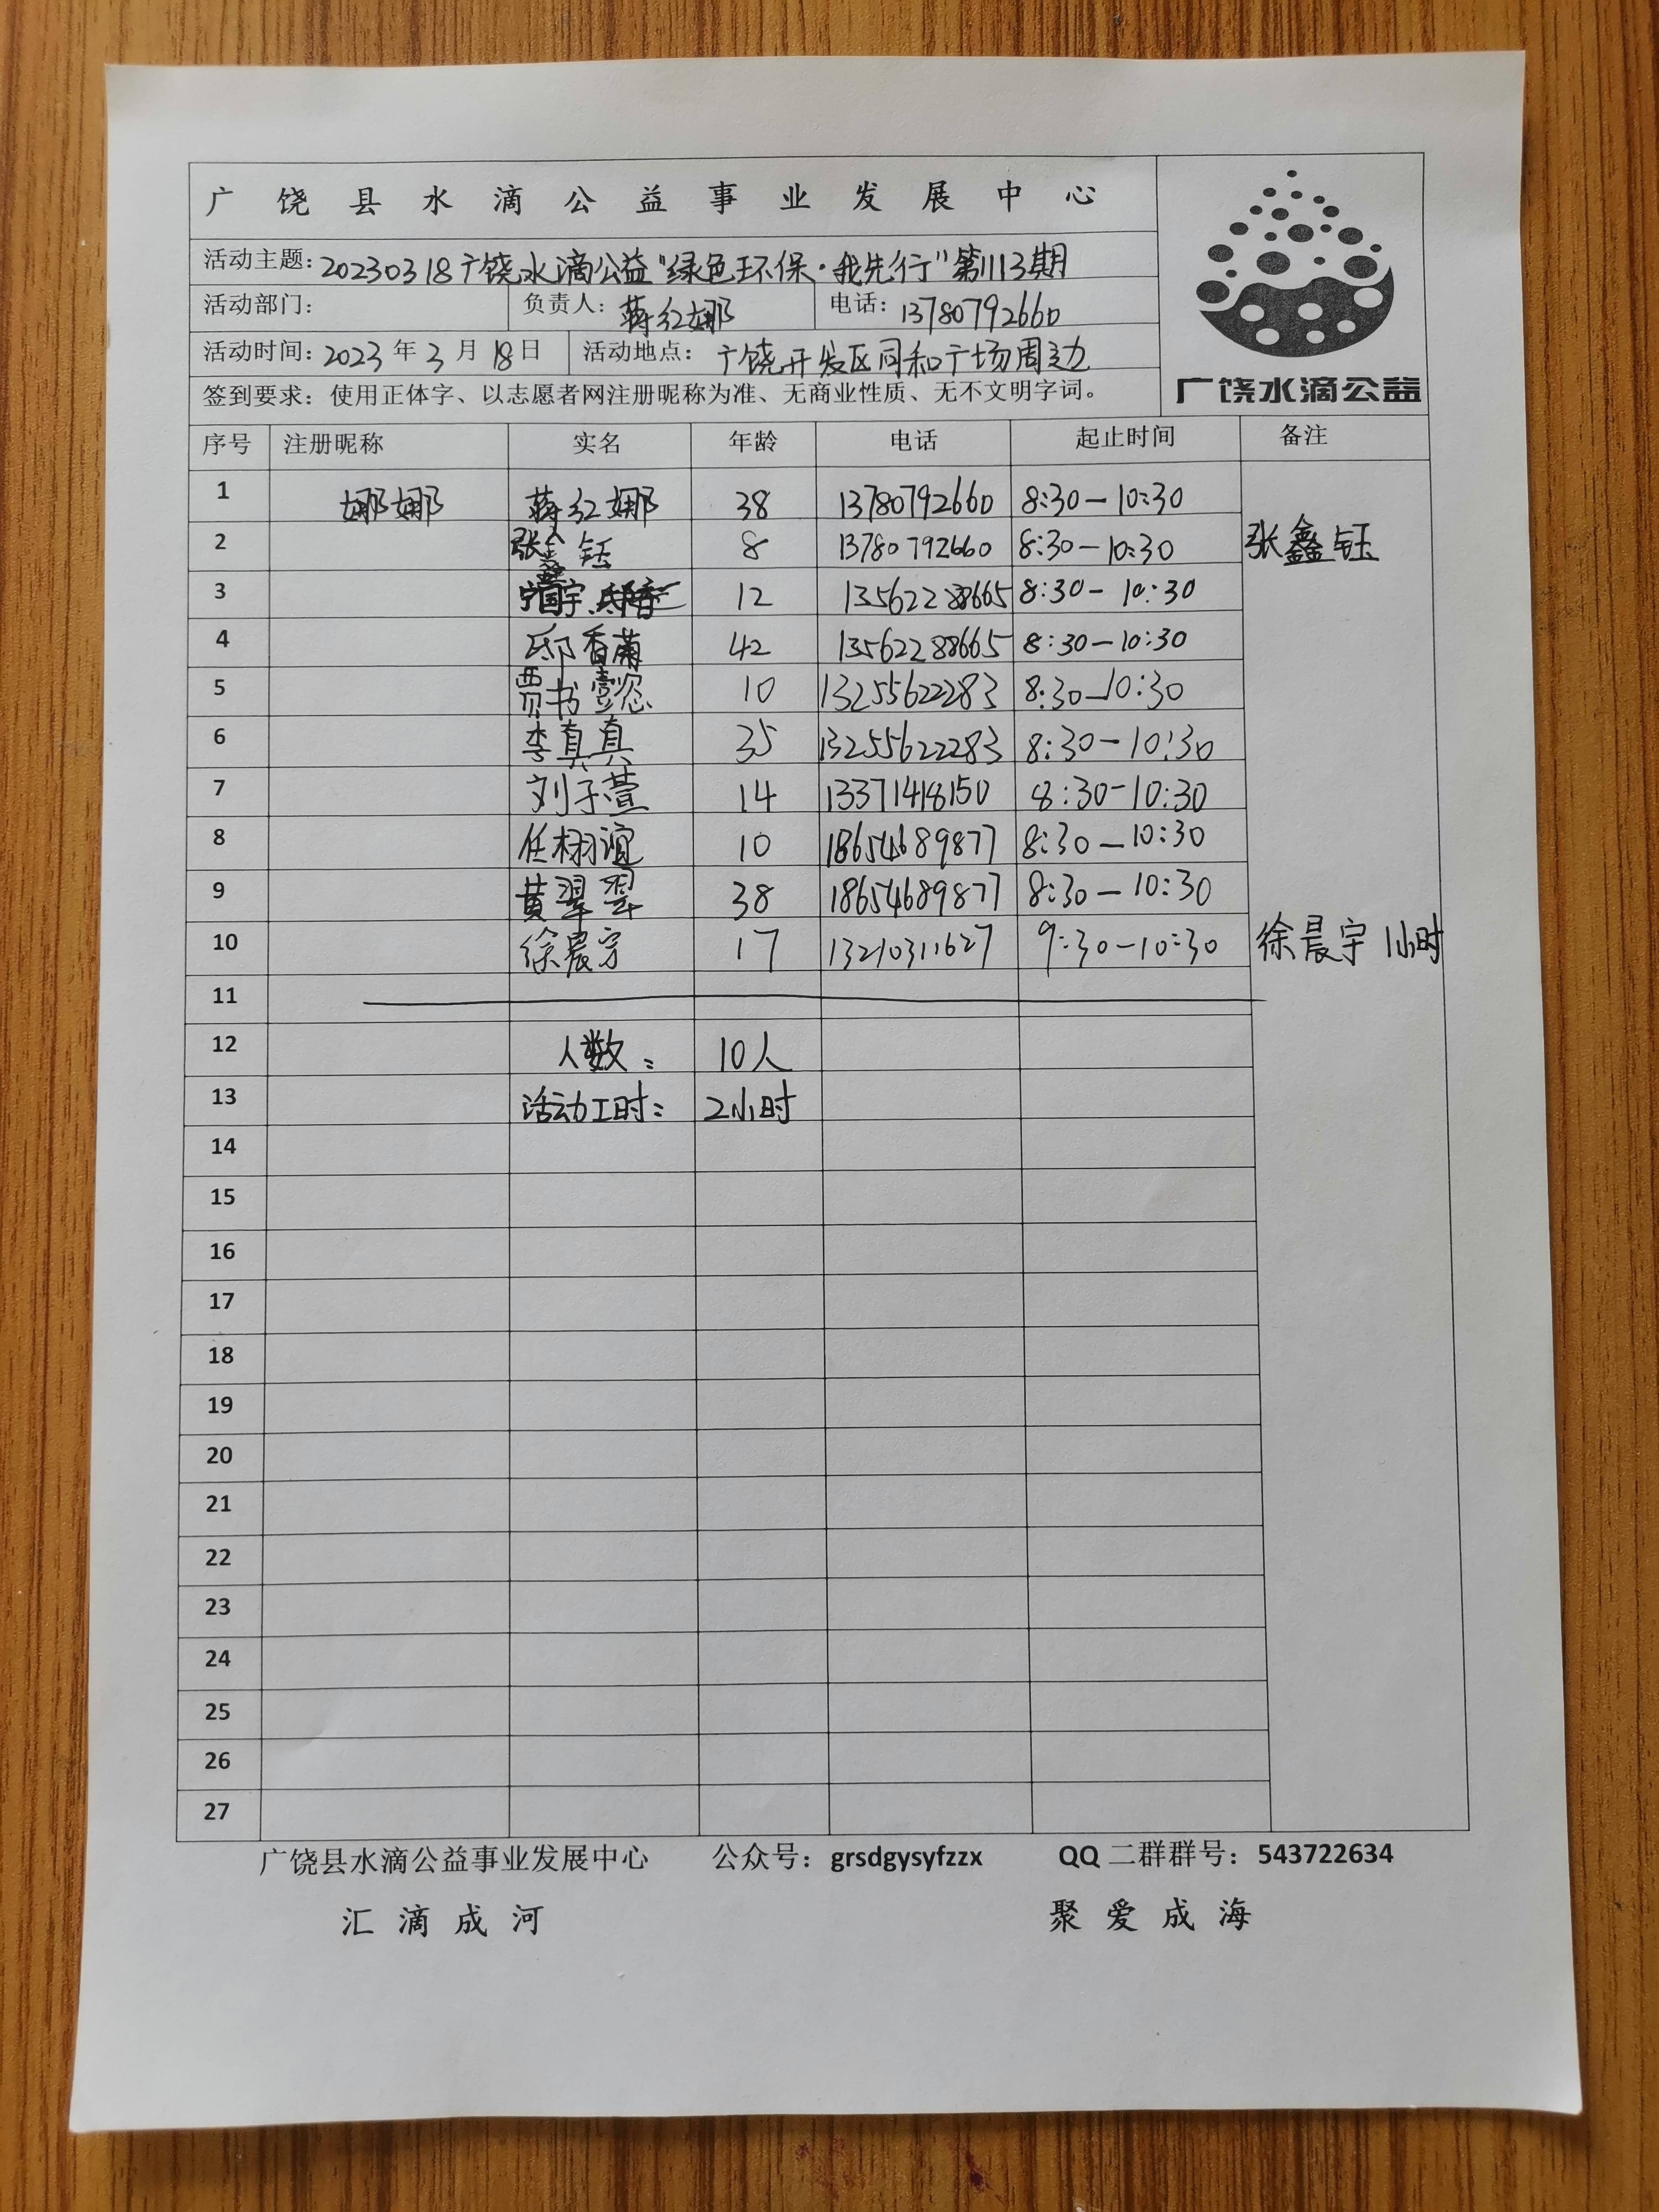 广饶县水滴公益事业发展中心
活动主题：20230318广饶水滴公益"绿色环保·我先行"第1113期
活动部门： 负责人：蒋红娜 电话：13780792660
活动时间：2023年3月18日 活动地点：广饶开发区同和广场周边
签到要求：使用正体字、以志愿者网注册昵称为准、无商业性质、无不文明字词。
广饶水滴公益
序号 注册昵称 实名 年龄 电话 起止时间 备注
1 娜娜 蒋红娜 38 13780792660 8:30-10:30
2 张鑫钰 8 13780792660 8:30-10:30 张鑫钰
3 12 13562288665 8:30-10:30
4 邸香菊 42 13562288665 8:30-10:30
5 贾书壹 10 13255622283 8:30-10:30
6 李真真 35 13255622283 8:30-10:30
7 刘子萱 14 13371418150 8:30-10:30
8 任栩谊 10 18654689877 8:30-10:30
9 黄翠翠 38 18654689877 8:30-10:30
10 徐晨宇 17 13210311627 9:30-10:30 徐晨宇 1小时
11
12 人数： 10人
13 活动工时： 2小时
14
15
16
17
18
19
20
21
22
23
24
25
26
27
广饶县水滴公益事业发展中心 公众号：grsdgysyfzzx QQ二群群号：543722634
汇滴成河 聚爱成海